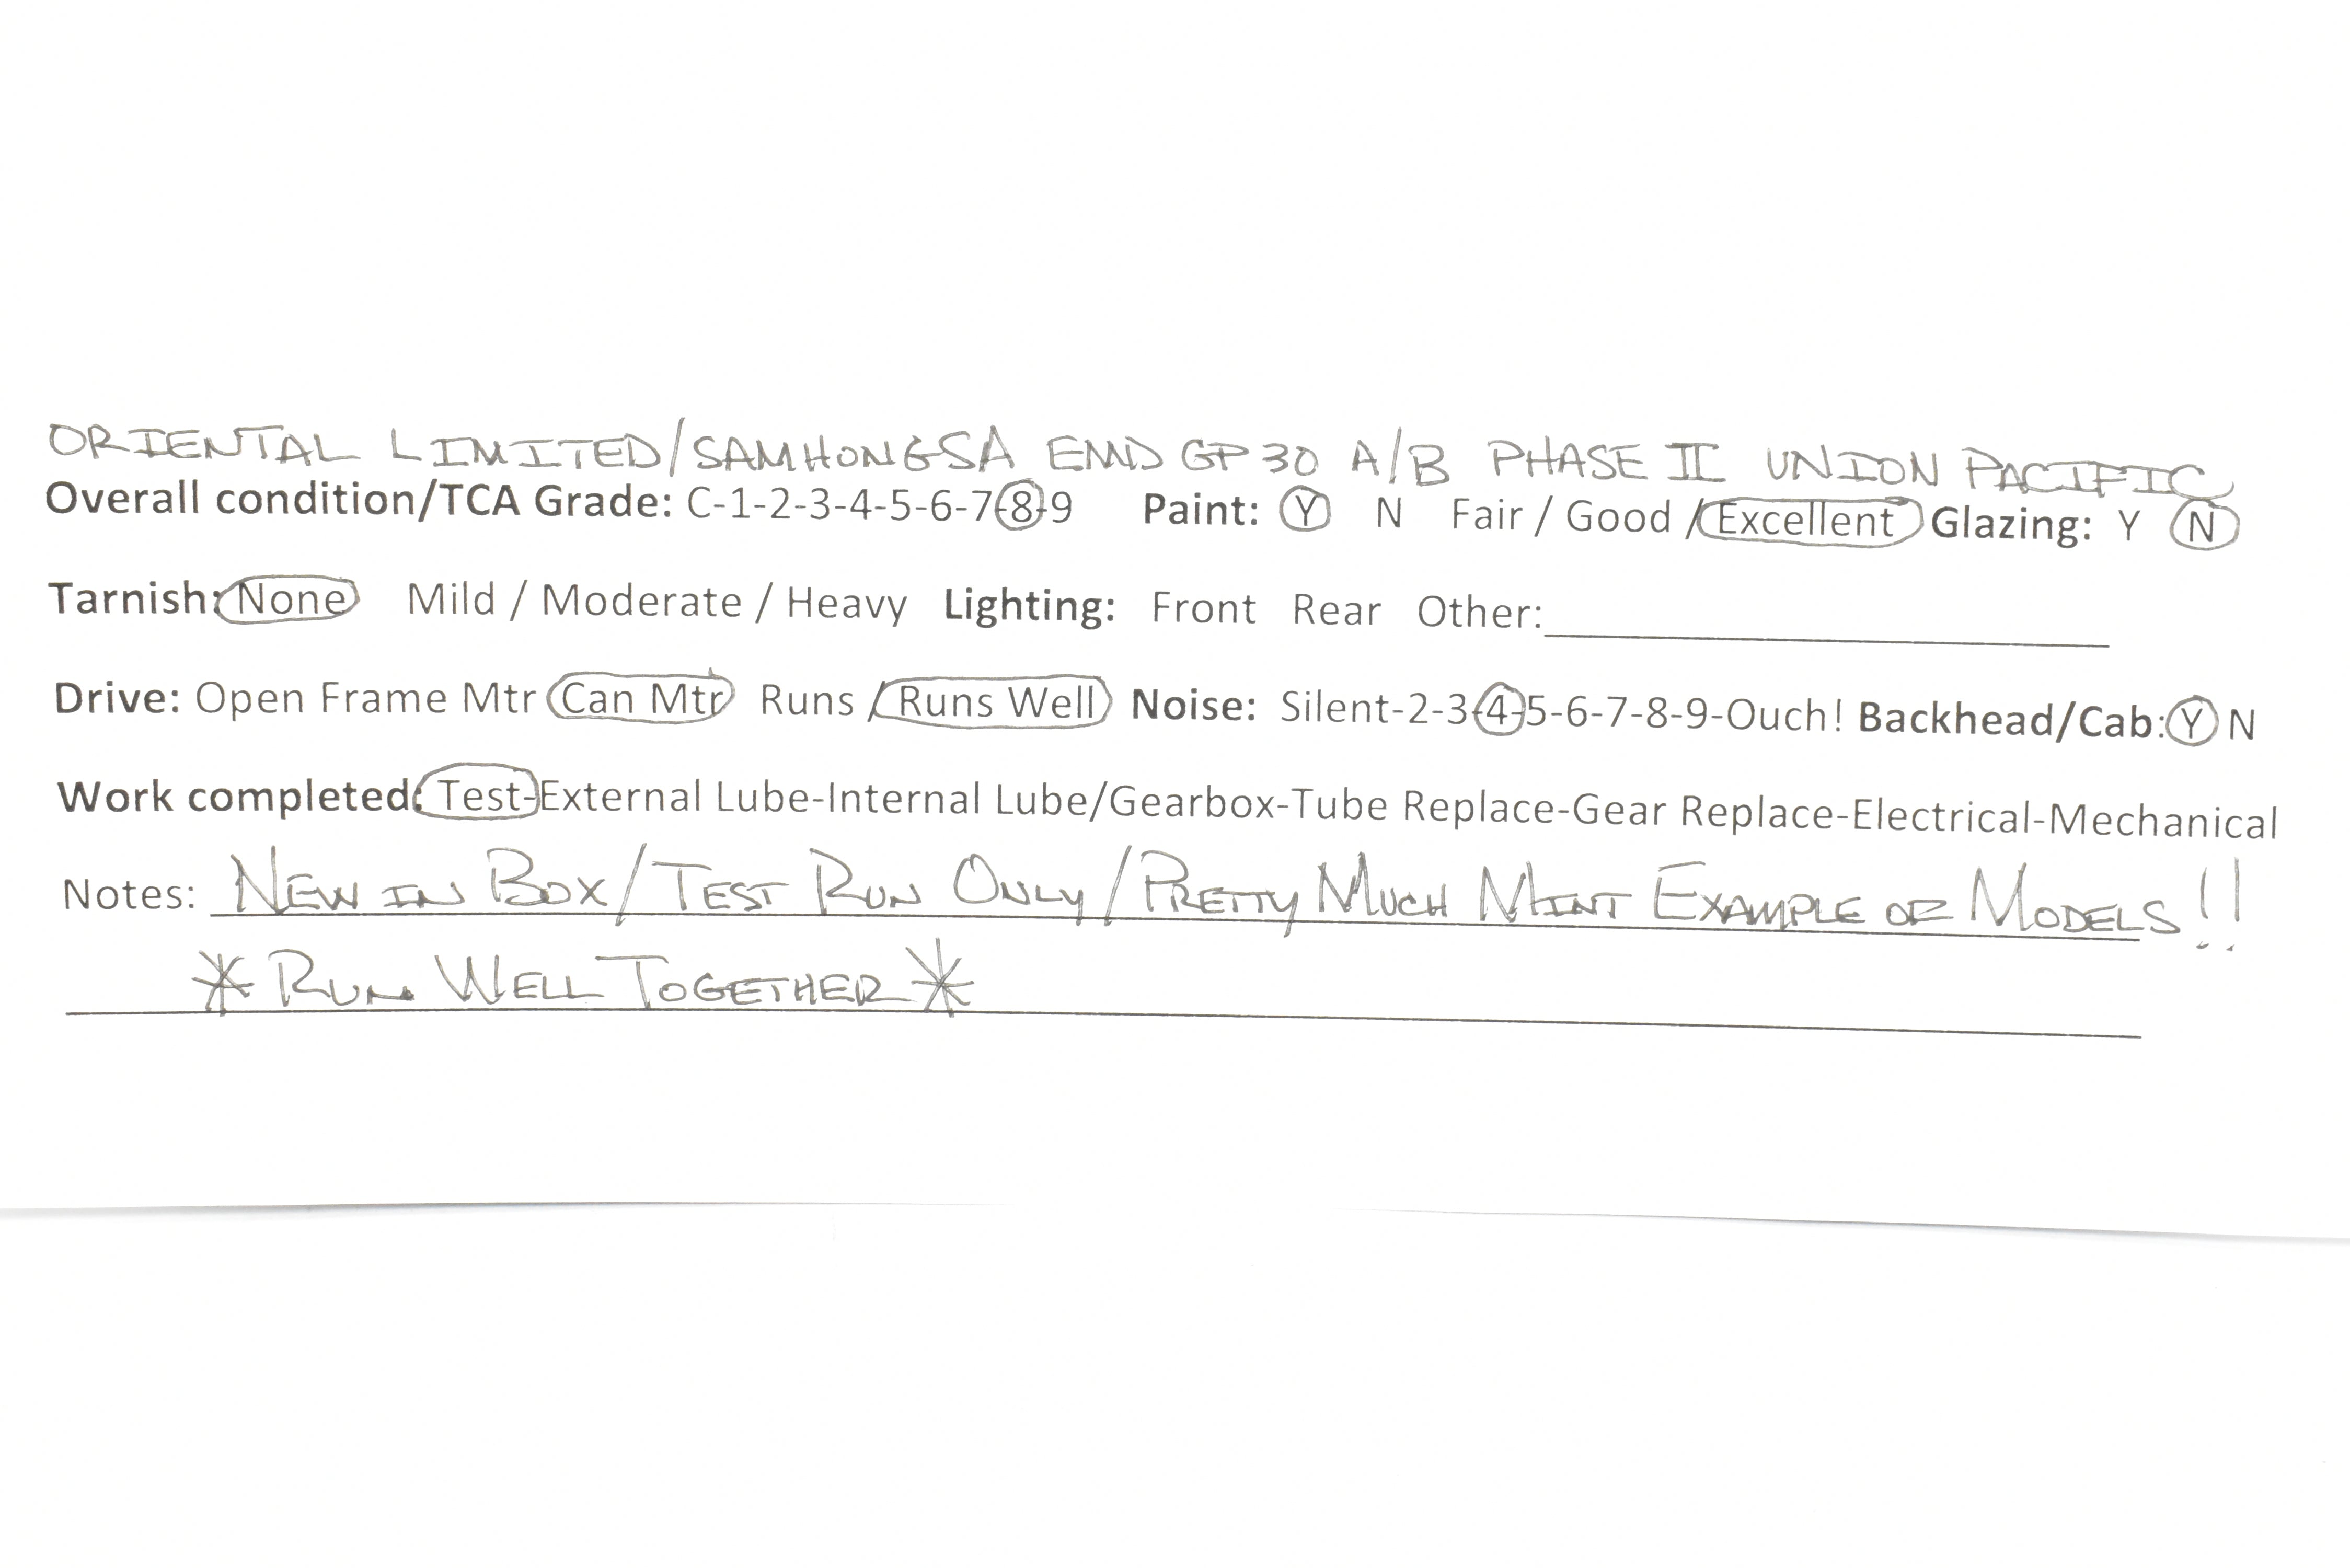 ORIENTAL LIMITED/SAMHONGSA EMD GP30 A/B PHASE II UNION PACIFIC
Overall condition/TCA Grade: C-1-2-3-4-5-6-7-8-9 Paint: Y N Fair / Good / Excellent Glazing: Y N
Tarnish: None Mild / Moderate / Heavy Lighting: Front Rear Other:
Drive: Open Frame Mtr Can Mtr Runs / Runs Well Noise: Silent-2-3-4-5-6-7-8-9-Ouch! Backhead/Cab: Y N
Work completed: Test-External Lube-Internal Lube/Gearbox-Tube Replace-Gear Replace-Electrical-Mechanical
Notes: NEW IN BOX/TEST RUN ONLY/PRETTY MUCH MINT EXAMPLE OF MODELS!!
*RUN WELL TOGETHER*